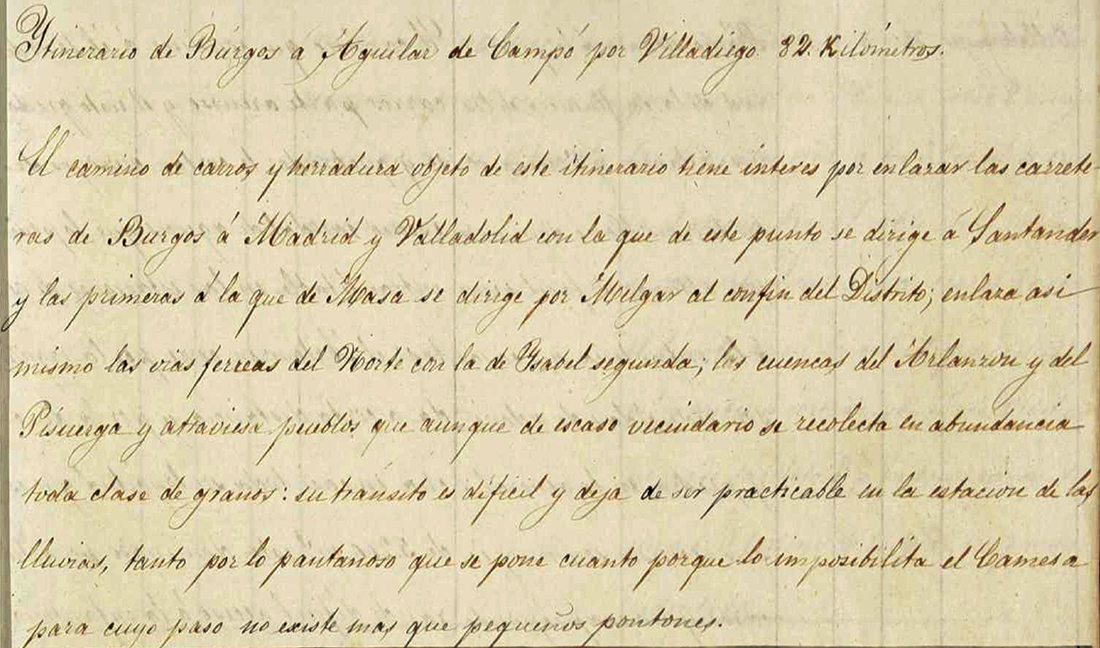 Ytinerario de Búrgos á Aguilar de Campó por Villadiego. 82. Kilómetros.
El camino de carros y herradura objeto de este itinerario tiene interes por enlazar las carrete-
ras de Burgos á Madrid y Valladolid con la que de este punto se dirige á Santander
y las primeras á la que de Masa se dirige por Melgar al confin del Distrito; enlaza asi
mismo las vias ferreas del Norte con la de Ysabel segunda; las cuencas del Arlanzon y del
Pisuerga y atraviesa pueblos que aunque de escaso vecindario se recolecta en abundancia
toda clase de granos: su tránsito es dificil y deja de ser practicable en la estacion de las
lluvias, tanto por lo pantanoso que se pone cuanto porque lo imposibilita el Camesa
para cuyo paso no existe mas que pequeños pontones.